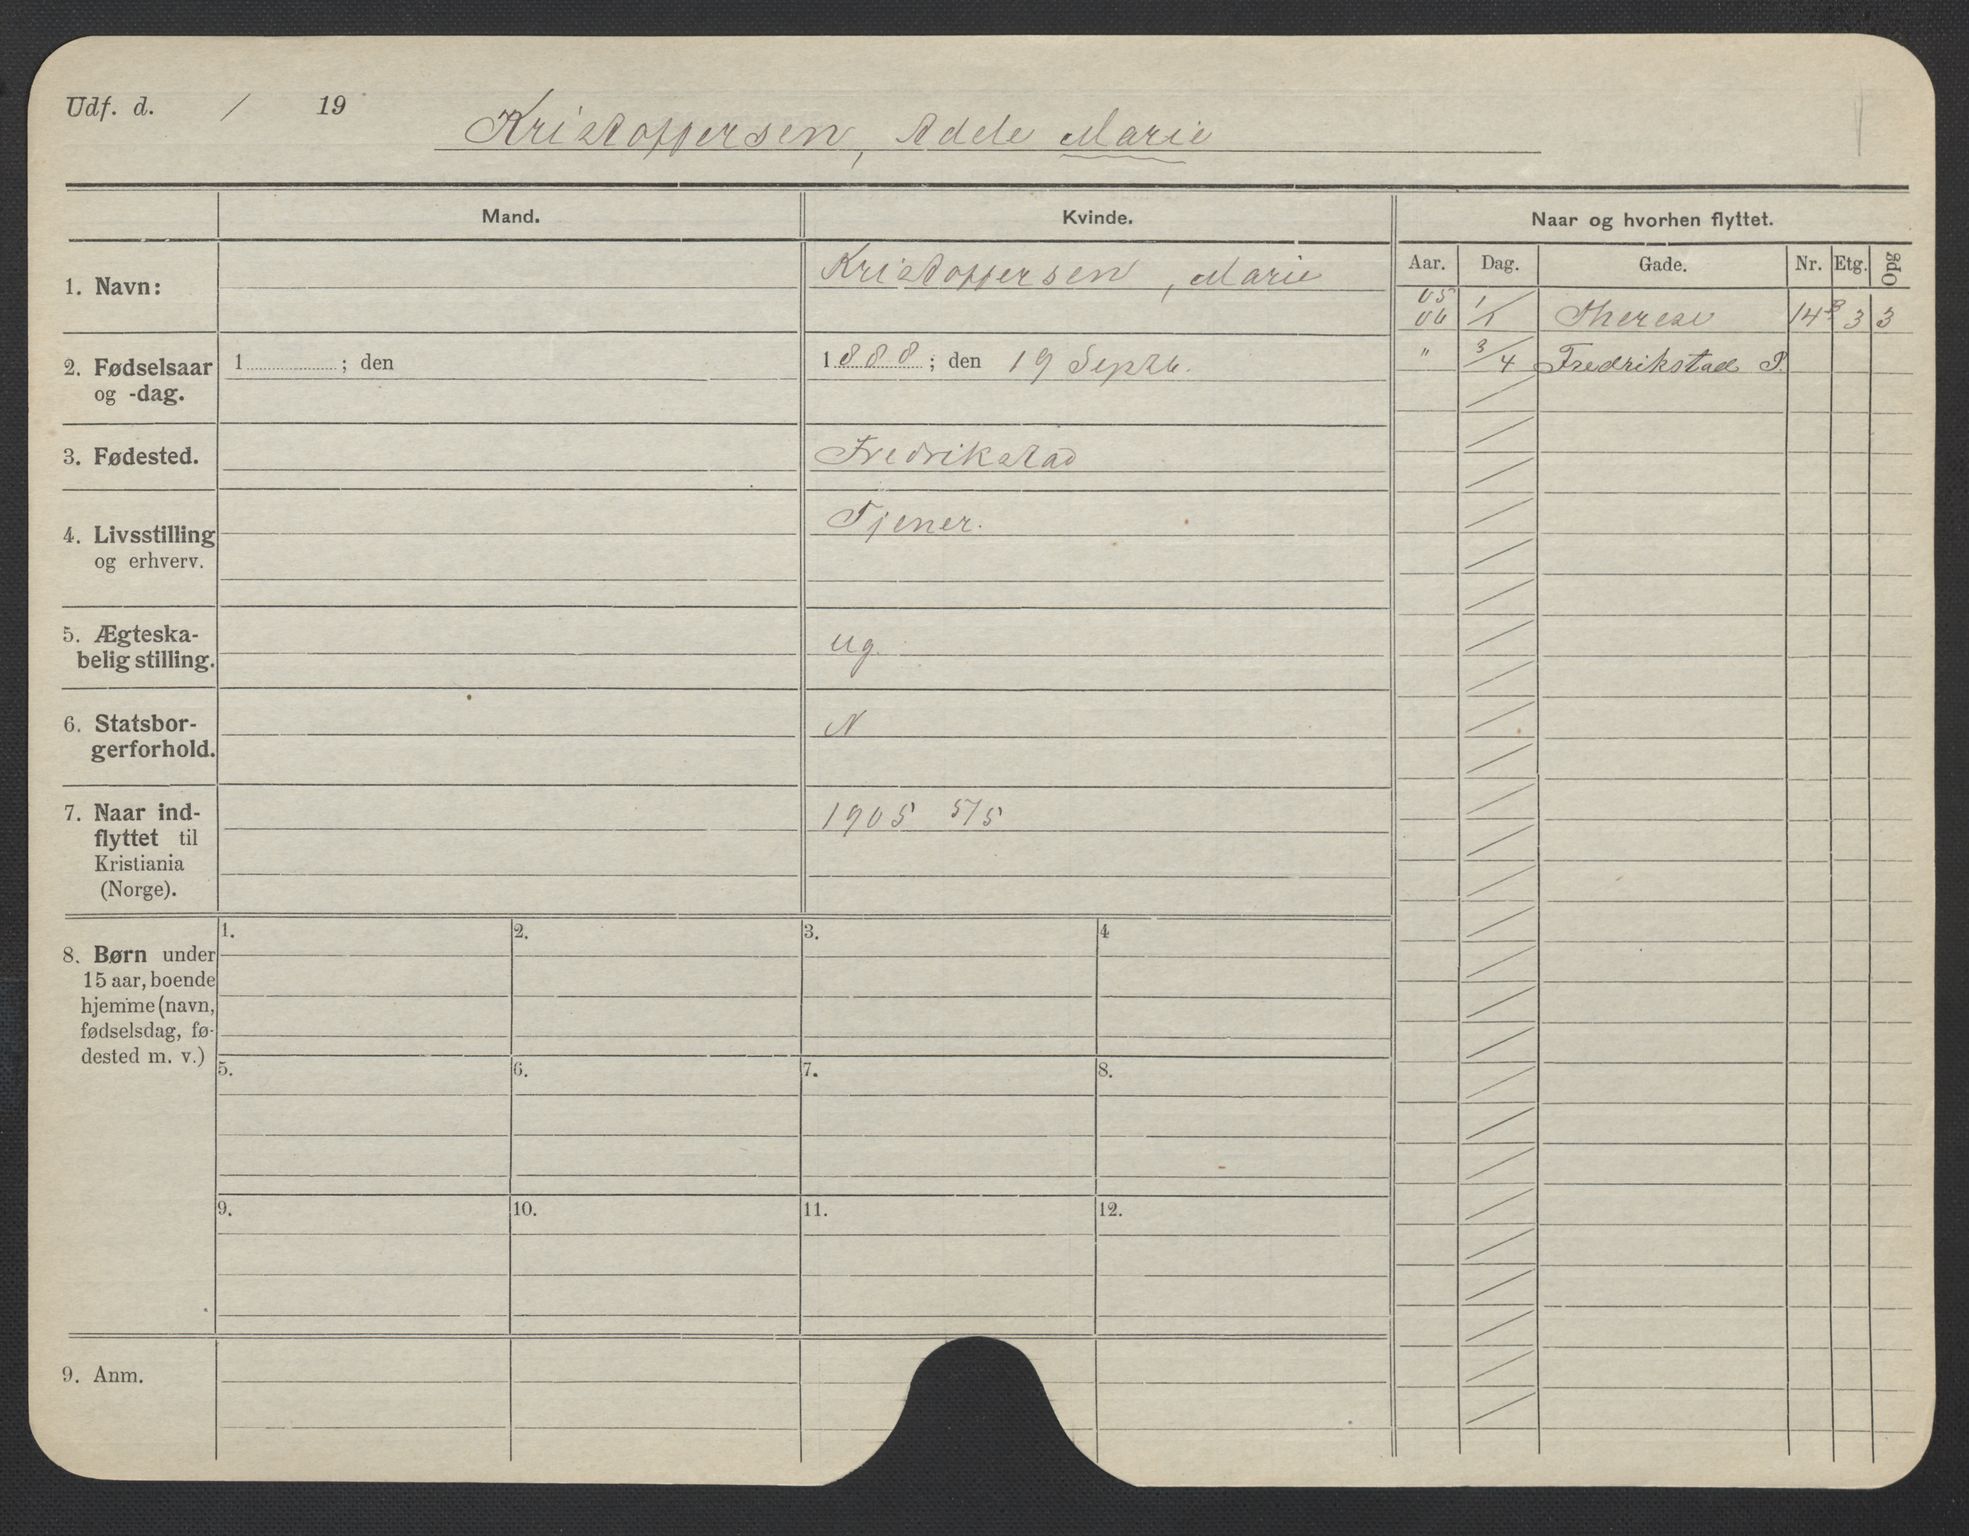 Udf. d. / 19
Kristoffersen, Adele Marie
Mand.
Kvinde.
Naar og hvorhen flyttet.
Aar. Dag. Gade. Nr. Etg. Opg
1. Navn:
Kristoffersen, Marie
05
06 1/1 Therese 14 B 3 3
" 3/4 Fredrikstad P.
2. Fødselsaar
og -dag.
1 ; den
1888 ; den 19 Septb.
3. Fødested.
Fredrikstad
4. Livsstilling
og erhverv.
Tjener.
5. Ægteska-
belig stilling.
ug.
6. Statsbor-
gerforhold.
N
7. Naar ind-
flyttet til
Kristiania
(Norge).
1905 5/5
8. Børn under
15 aar, boende
hjemme (navn,
fødselsdag, fø-
dested m. v.)
1. 2. 3. 4
5. 6. 7. 8.
9. 10. 11. 12.
9. Anm.